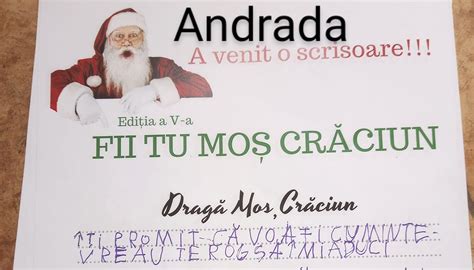 Andrada
A venit o scrisoare!!!
Ediția a V-a
FII TU MOȘ CRĂCIUN
Dragă Moș Crăciun
ÎTI PROMIT CĂ VOATI CUMINTE-
VREAU TE ROG SĂ ÎMI ADUCI